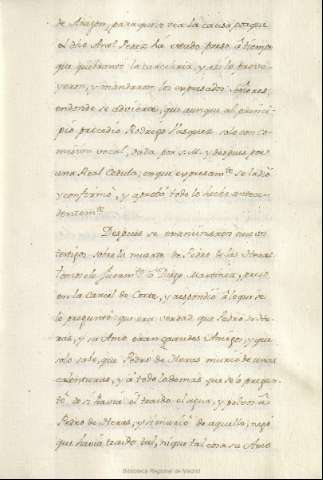 de Aragon, para que se vea la causa porque
el dho Ant.l Perez ha estado preso el tiempo
que quebrantó la carceleria, y assi lo prove
yeron, y mandaron los expresados Señores,
en donde se advierte, que aunque al princi-
pio precedio Rodrigo Vasquez solo con co-
mision vocal, dada por S.M. y despues por
una Real Cedula, en que expresam.te se la dio
y confirmó, y aprobó todo lo hecho antece-
dentem.te
Despues se examinaron nuevos
testigos sobre la muerte de Pedro de las Heras
tomosele Juram.to a Diego Martinez, preso
en la Carcel de Corte, y respondió a lo que se
le preguntó: que era verdad que Pedro de He-
ras, y su Amo eran grandes Amigos, y que
solo sabe, que Pedro de Heras murio de unas
calenturas, y a todo lo demas que se le pregun-
tó de si havia el traido el agua, y polvos a
Pedro de Heras, y si murió de aquello, negó
que havia traido tal, ni que tal cosa su Amo
Biblioteca Regional de Madrid